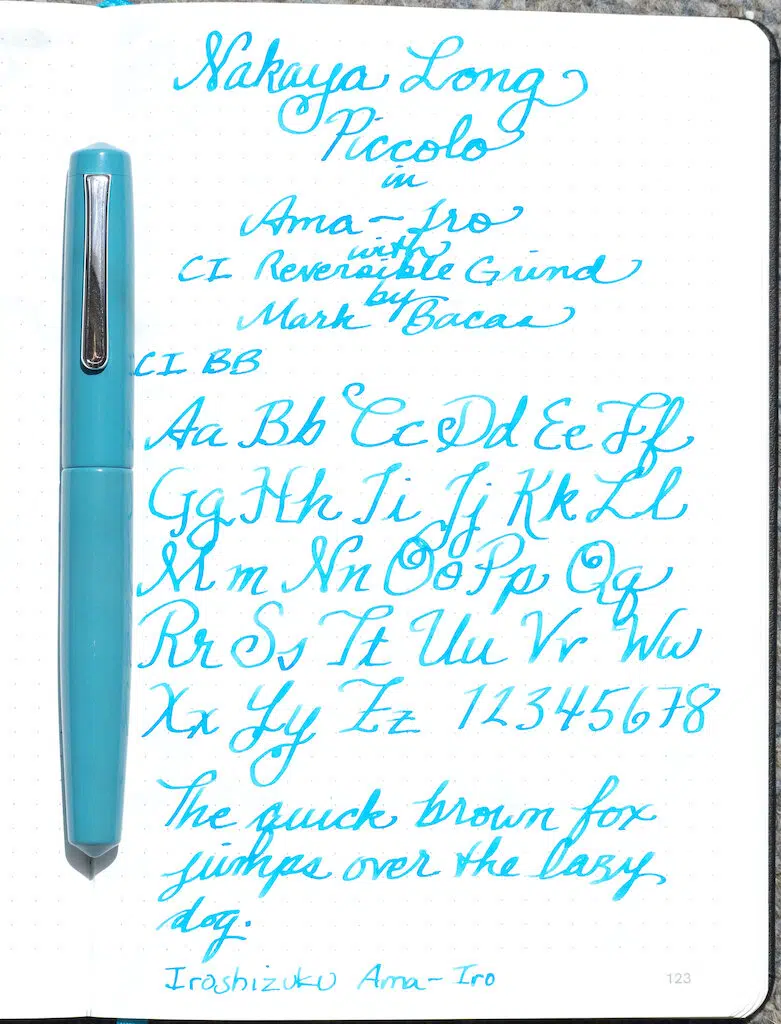 Nakaya Long
Piccolo
in
Ama-Iro
with
CI Reversible Grind
by
Mark Bacas
CI BB
Aa Bb Cc Dd Ee Ff
Gg Hh Ii Jj Kk Ll
Mm Nn Oo Pp Qq
Rr Ss Tt Uu Vv Ww
Xx Yy Zz 12345678
The quick brown fox
jumps over the lazy
dog.
Iroshizuku Ama-Iro
123